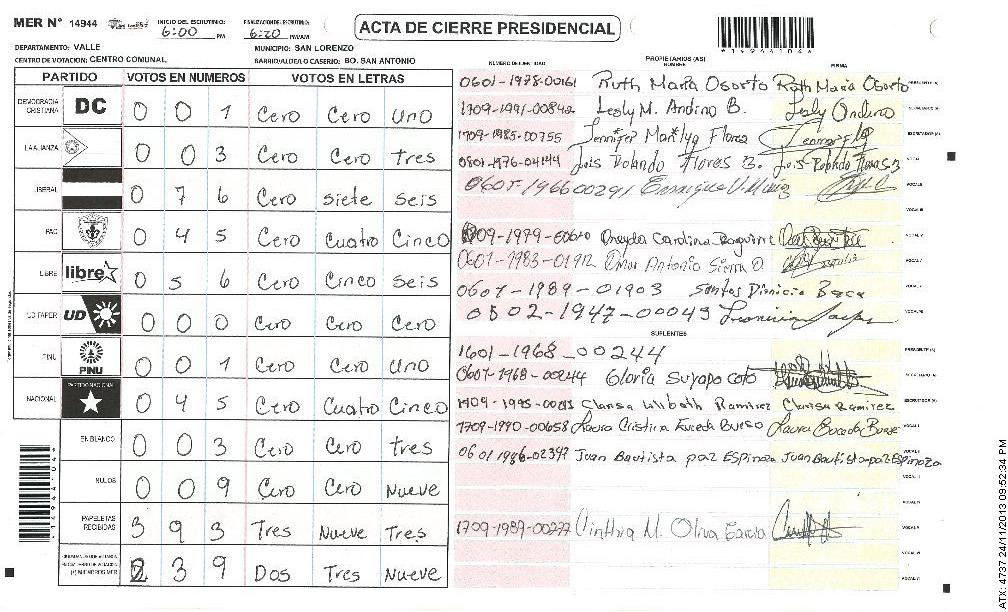 MER N° 14944
INICIO DEL ESCRUTINIO: 6:00 PM
FINALIZACION DEL ESCRUTINIO: 6:20 PM/AM
ACTA DE CIERRE PRESIDENCIAL
DEPARTAMENTO: VALLE
MUNICIPIO: SAN LORENZO
CENTRO DE VOTACION: CENTRO COMUNAL
BARRIO/ALDEA O CASERIO: BO. SAN ANTONIO
PARTIDO VOTOS EN NUMEROS VOTOS EN LETRAS
DEMOCRACIA CRISTIANA DC 0 0 1 Cero Cero Uno
LA ALIANZA 0 0 3 Cero Cero tres
LIBERAL 0 7 6 Cero siete seis
PAC 0 4 5 Cero Cuatro Cinco
LIBRE libre 0 5 6 Cero Cinco seis
UD FAPER UD 0 0 0 Cero Cero Cero
PINU PINU 0 0 1 Cero Cero Uno
NACIONAL PARTIDO NACIONAL 0 4 5 Cero Cuatro Cinco
EN BLANCO 0 0 3 Cero Cero tres
NULOS 0 0 9 Cero Cero Nueve
PAPELETAS RECIBIDAS 3 9 3 Tres Nueve Tres
2 3 9 Dos Tres Nueve
NUMERO DE IDENTIDAD PROPIETARIOS (AS) NOMBRE FIRMA
0601-1978-00161 Ruth Maria Osorto Ruth Maria Osorto
1709-1991-00842 Lesly M. Andino B. Lesly Andino
1709-1985-00755 Jennifer Marilyn Flores
0801-1976-04144 Luis Rolando Flores B. Luis Rolando Flores B
0607-1966 00291 Enrique
09-1979-00610 Oneyda Carolina
0601-1983-01912 Omar Antonio Sierra O
0607-1989-01903 Santos Dionicio Baca
0502-1947-00043
SUPLENTES
1601-1968-00244
0607-1968-00244 Gloria Suyapa Coto
Clarisa Lilibeth Ramirez Clarisa Ramirez
1709-1990-00658 Laura Cristina Euceda Bueso Laura Euceda Bueso
0601 1986-02397 Juan Bautista paz Espinoza Juan Bautista paz Espinoza
1709-1989-00277 Cinthia M. Oliva Garcia
*14944104*
ATX: 4737 24/11/2013 09:52:34 PM